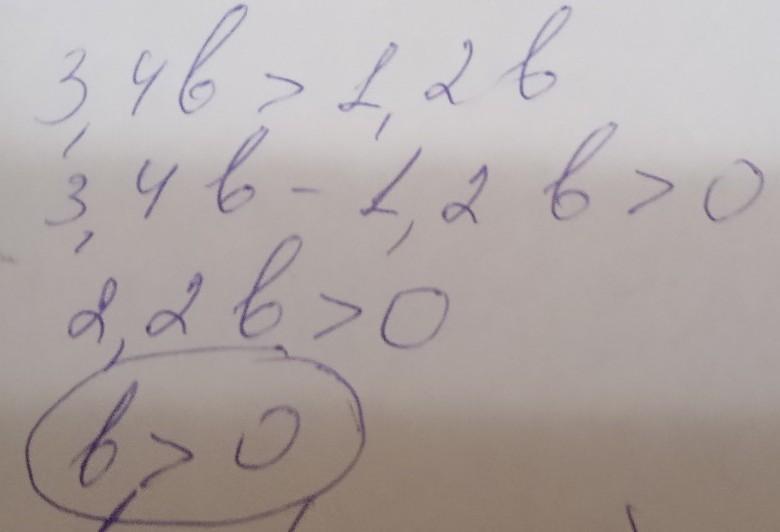 3,4b > 1,2b
3,4b - 1,2b > 0
2,2b > 0
b > 0